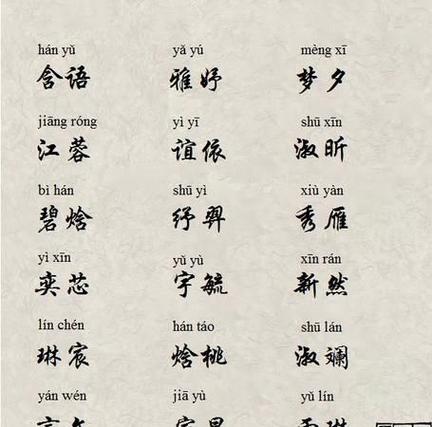 hán yǔ yǎ yú mèng xī
含语 雅妤 梦夕
jiāng róng yì yī shū xīn
江蓉 谊依 淑昕
bì hán shū yì xiù yàn
碧焓 纾羿 秀雁
yì xīn yǔ yù xīn rán
奕芯 宇毓 新然
lín chén hán táo shū lán
琳宸 焓桃 淑斓
yán wén jiā yù yǔ lín